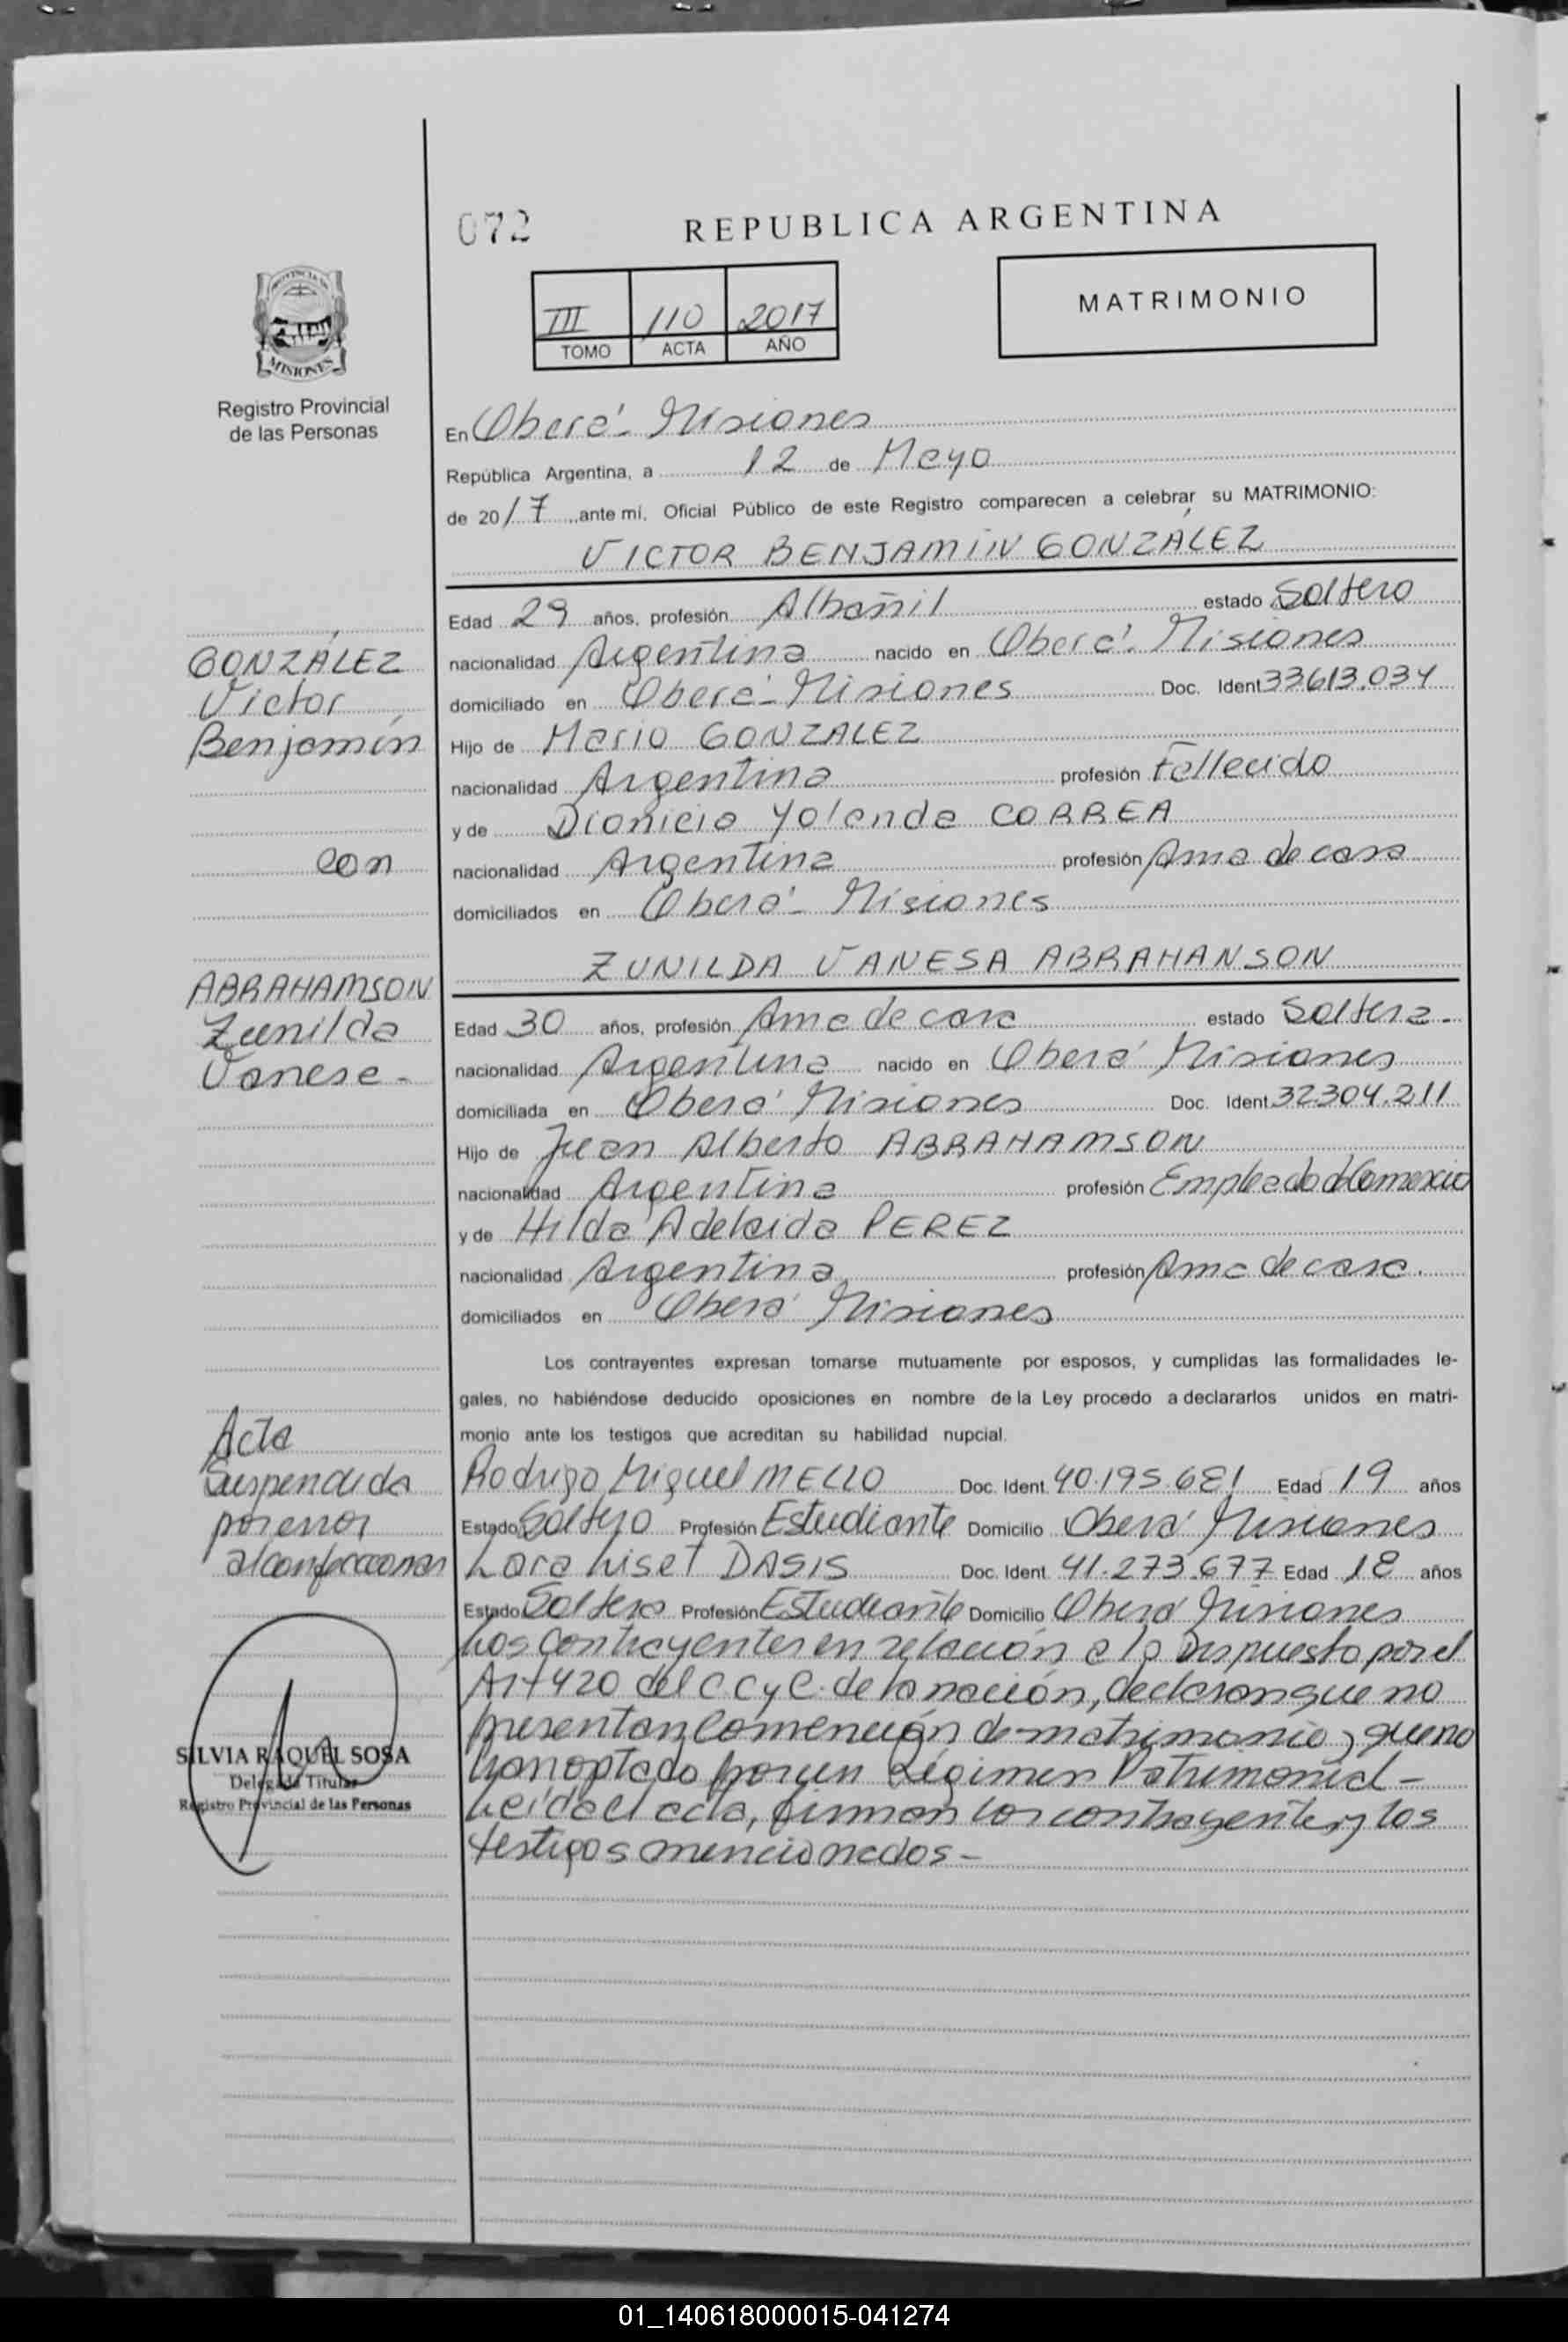 072
REPUBLICA ARGENTINA
III 110 2017
TOMO ACTA AÑO
MATRIMONIO
PROVINCIA DE
MISIONES
Registro Provincial
de las Personas
En Oberá - Misiones
República Argentina, a 12 de Mayo
de 2017 ante mí, Oficial Público de este Registro comparecen a celebrar su MATRIMONIO:
VICTOR BENJAMÍN GONZÁLEZ
Edad 29 años, profesión Albañil estado Soltero
nacionalidad Argentina nacido en Oberá - Misiones
domiciliado en Oberá - Misiones Doc. Ident 33.613.034
Hijo de Mario GONZALEZ
nacionalidad Argentina profesión Fallecido
y de Dionicia Yolanda CORREA
nacionalidad Argentina profesión Ama de casa
domiciliados en Oberá - Misiones
GONZÁLEZ
Victor
Benjamín
con
ABRAHAMSON
Zunilda
Vanesa -
ZUNILDA VANESA ABRAHANSON
Edad 30 años, profesión Ama de casa estado Soltera -
nacionalidad Argentina nacido en Oberá Misiones
domiciliada en Oberá Misiones Doc. Ident 32.304.211
Hijo de Juan Alberto ABRAHAMSON
nacionalidad Argentina profesión Empleado de Comercio
y de Hilda Adelaida PEREZ
nacionalidad Argentina profesión Ama de casa.
domiciliados en Oberá Misiones
Los contrayentes expresan tomarse mutuamente por esposos, y cumplidas las formalidades le-
gales, no habiéndose deducido oposiciones en nombre de la Ley procedo a declararlos unidos en matri-
monio ante los testigos que acreditan su habilidad nupcial.
Rodrigo Miguel MELLO Doc. Ident. 40.195.681 Edad 19 años
Estado Soltero Profesión Estudiante Domicilio Oberá Misiones
Lara Liset DASIS Doc. Ident. 41.273.677 Edad 18 años
Estado Soltera Profesión Estudiante Domicilio Oberá Misiones
Los contrayentes en relación a lo dispuesto por el
Art 420 del C.C y C. de la nación, declaran que no
presentan Convención de matrimonio y que no
han optado por un Régimen Patrimonial -
Leída el acta, firman los contrayentes y los
testigos mencionados -
Acta
Suspendida
por error
al confeccionar
SILVIA RAQUEL SOSA
Delegada Titular
Registro Provincial de las Personas
01_140618000015-041274